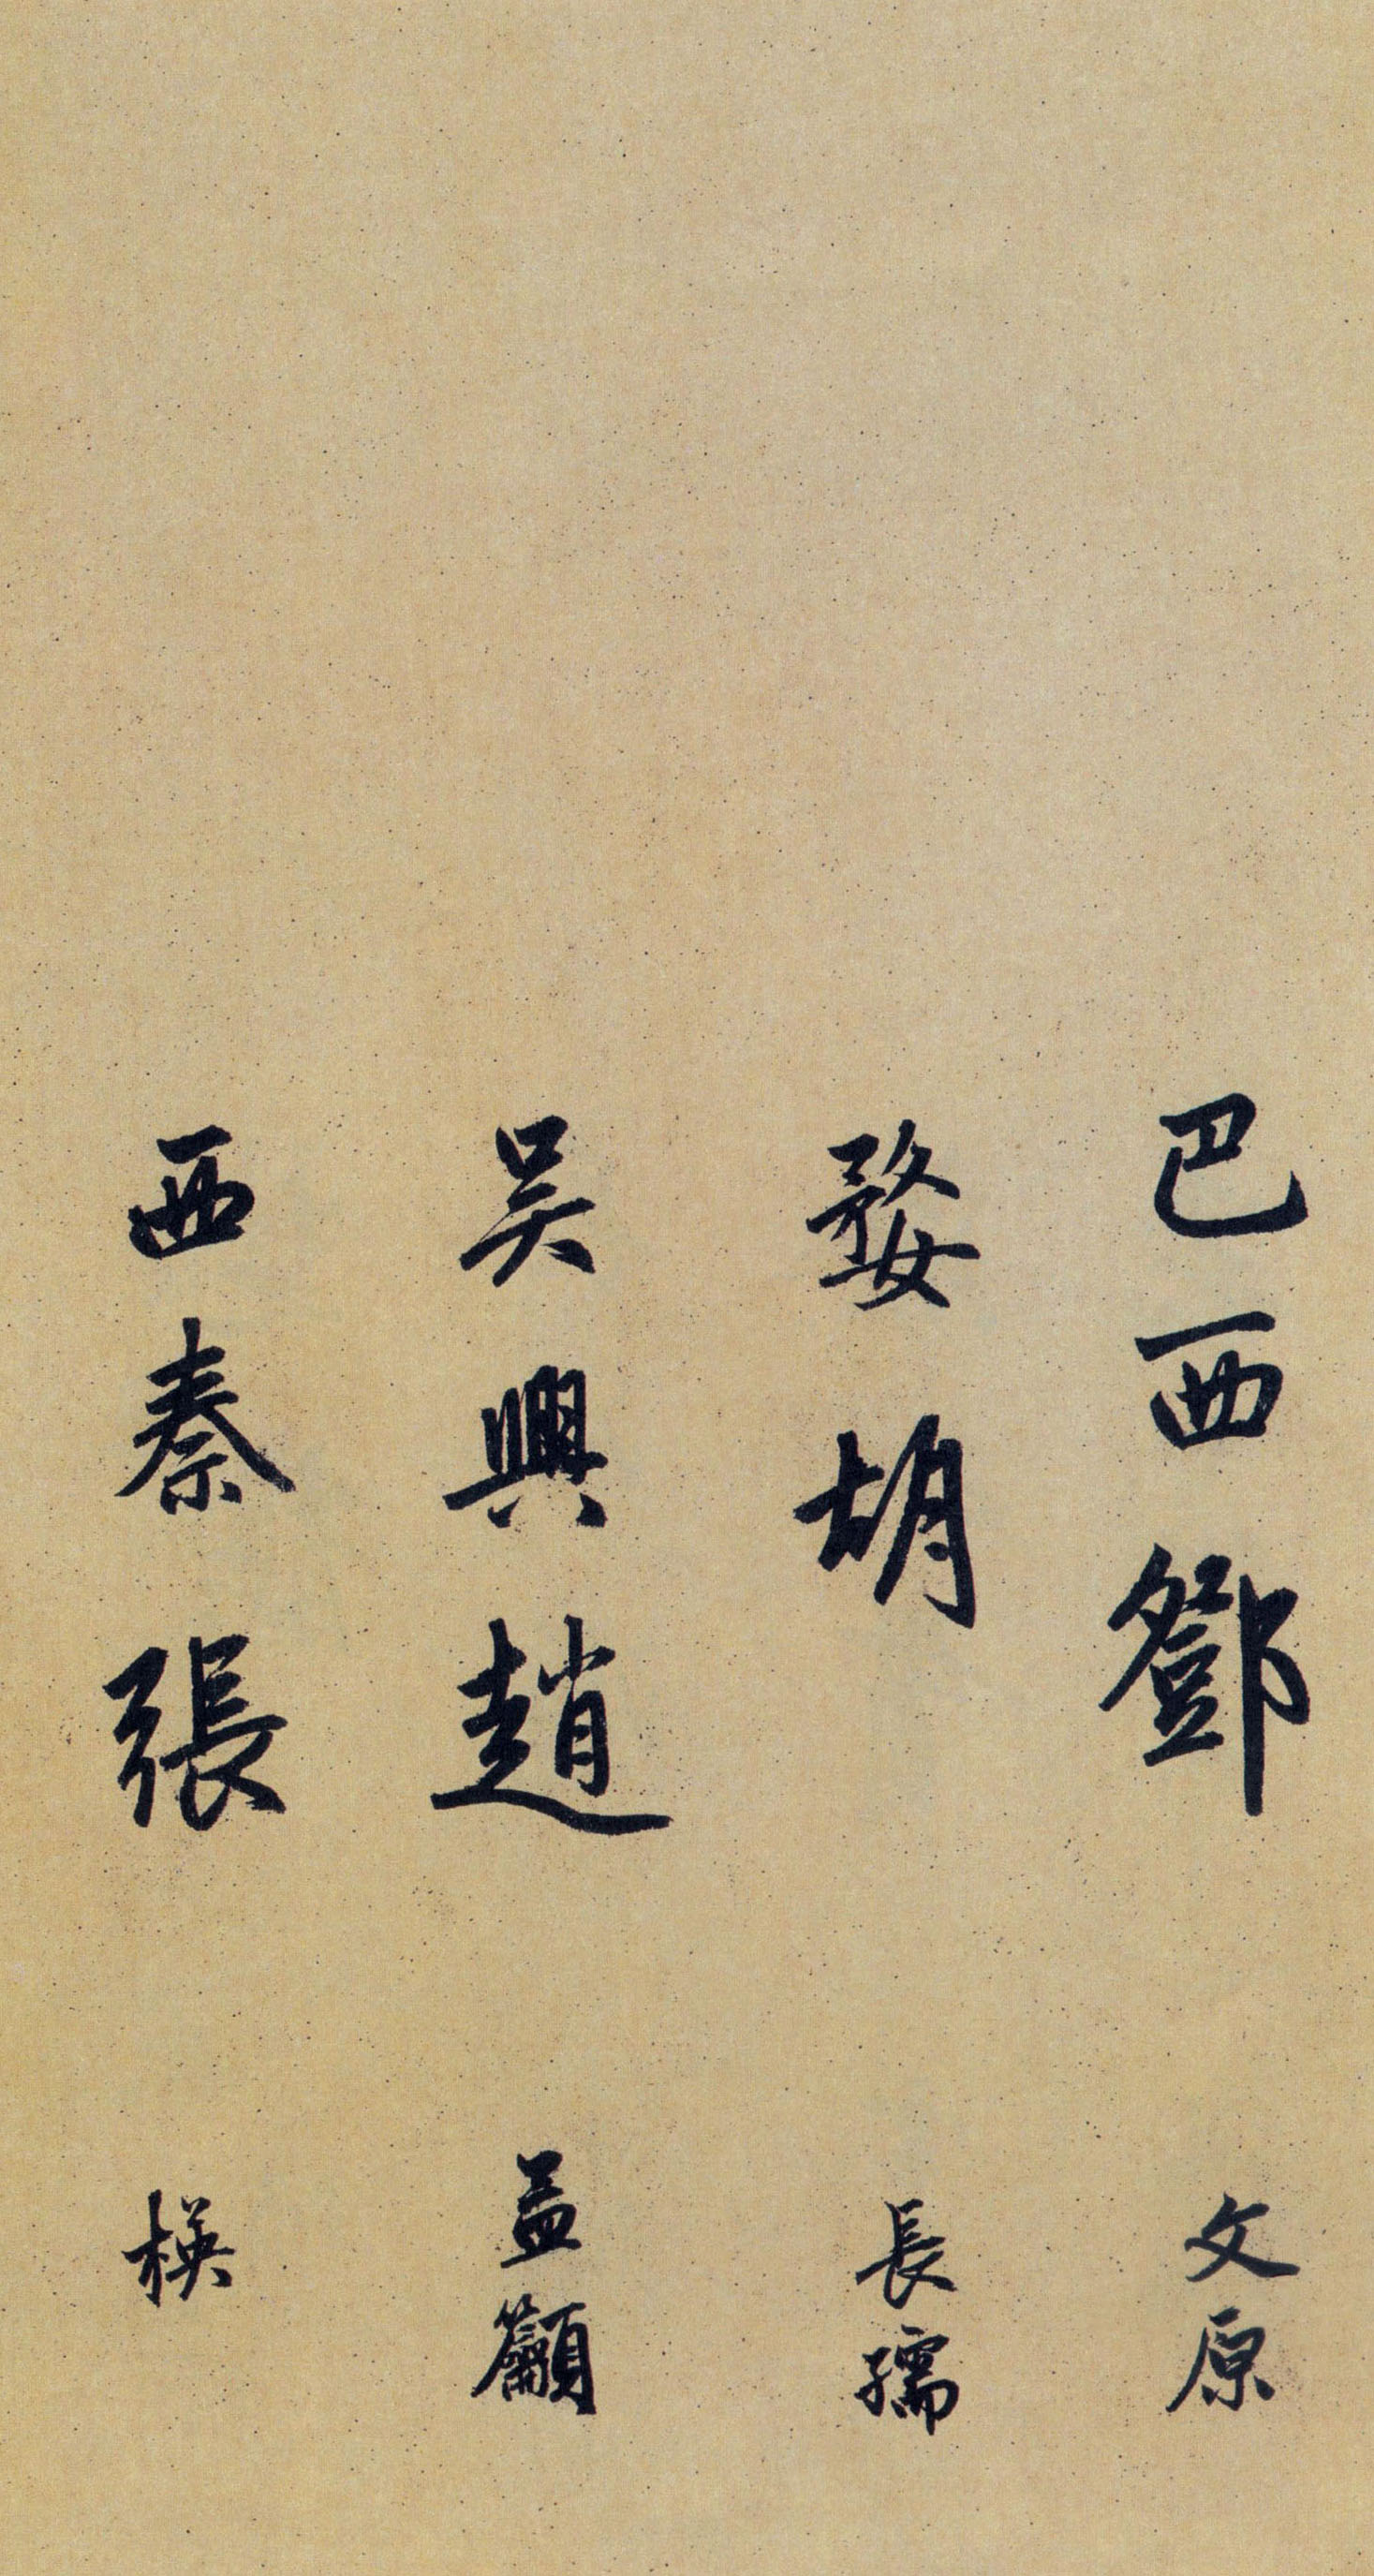 巴西鄧文原
婺胡長孺
吳興趙孟籲
西秦張楧